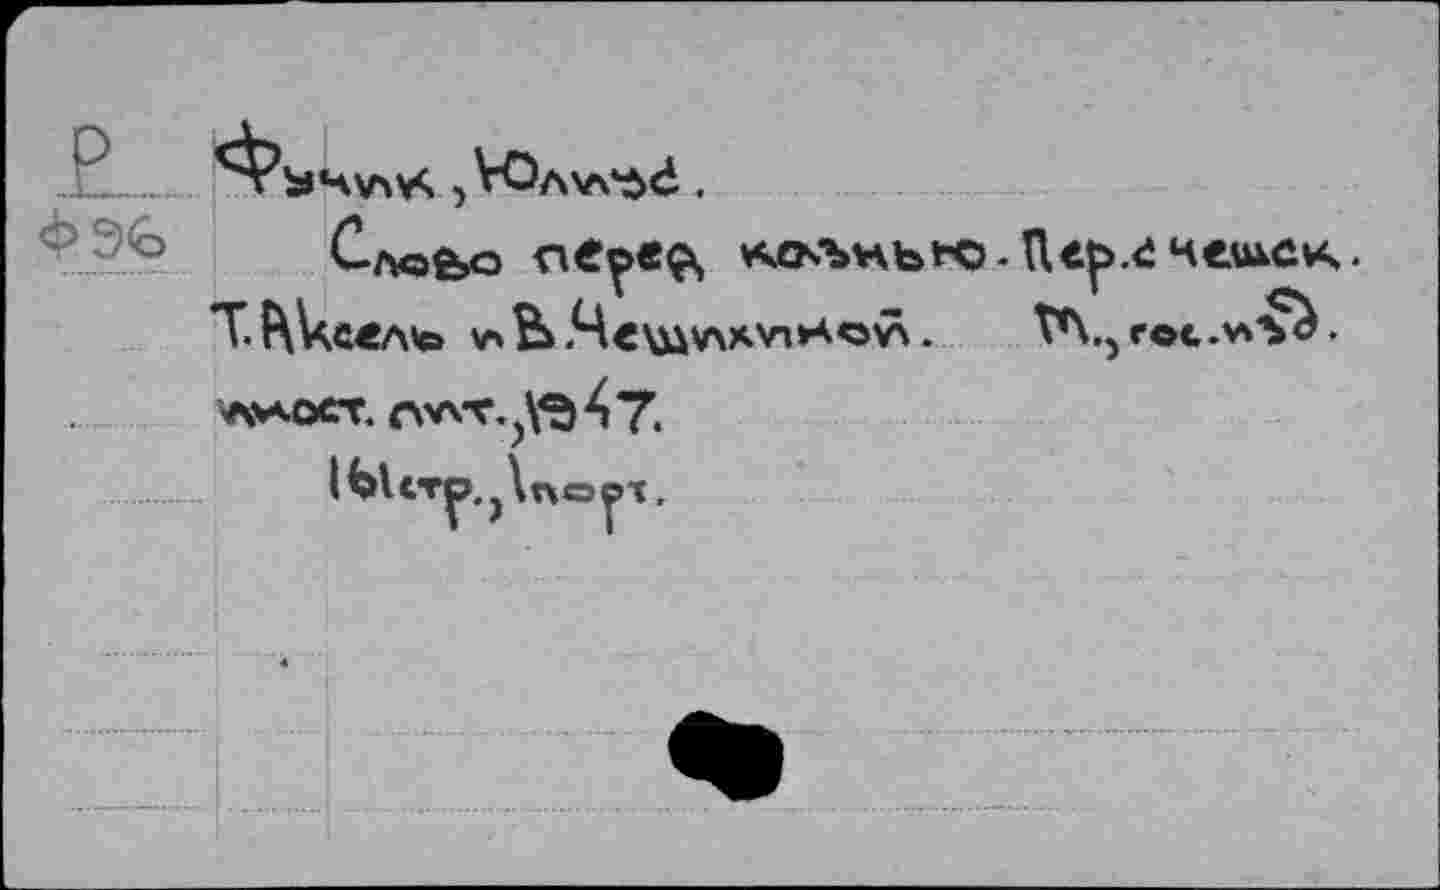 Р
Ф96
Фучик, Юлиус.
Слово перед казнью. Пер. с чешск.
Т. Аксель и В. Чешихиной. М., гос. изд.
иност. лит., 1947.
161стр., 1порт.